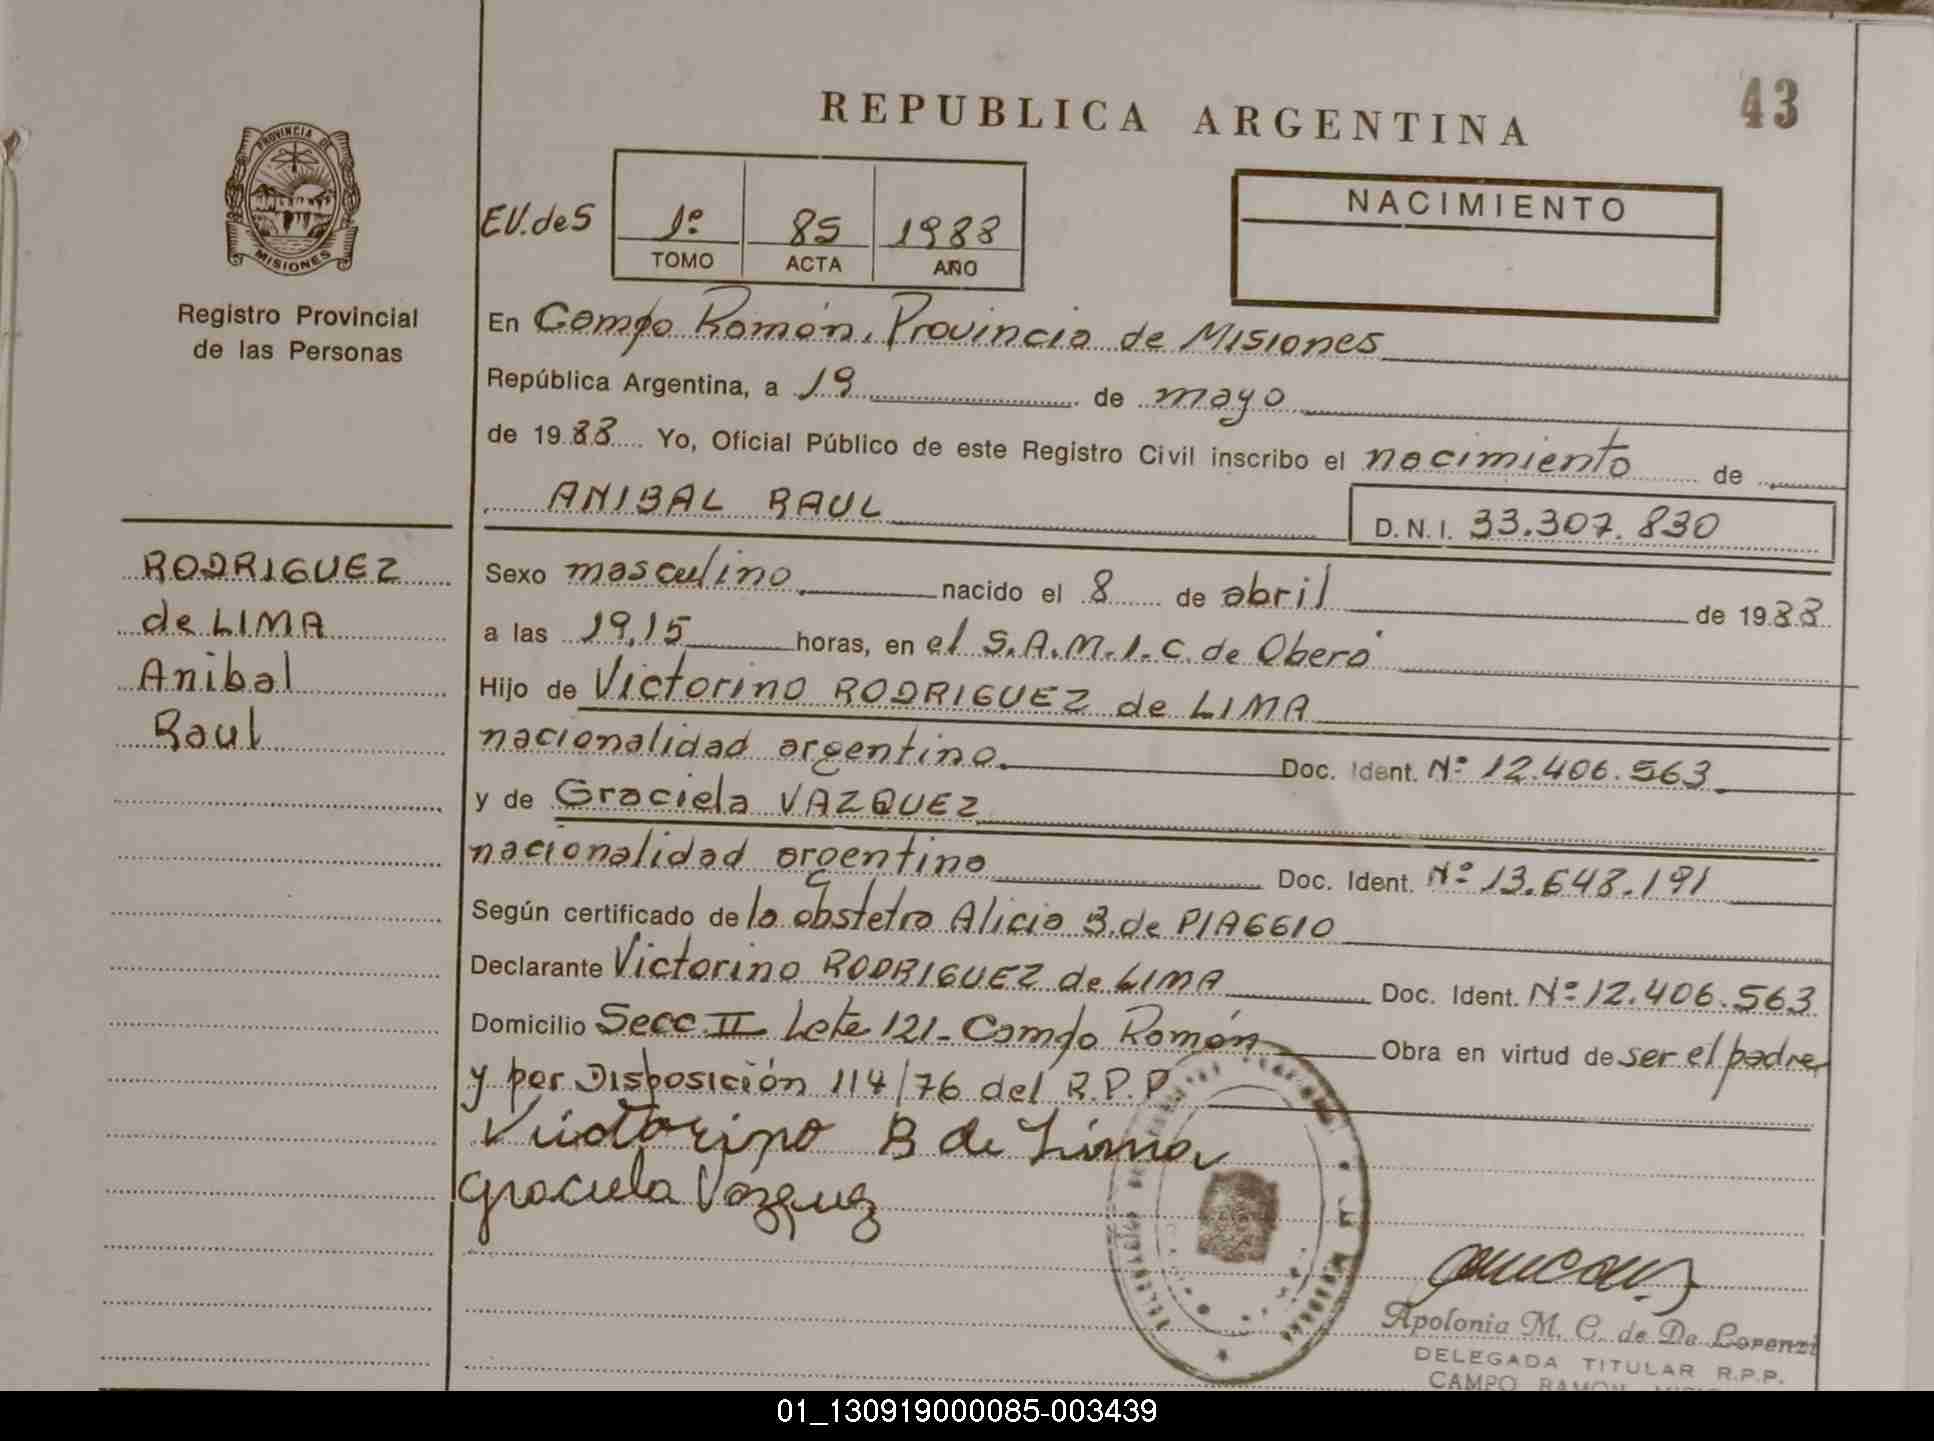 43
REPUBLICA ARGENTINA
PROVINCIA DE
MISIONES
Registro Provincial
de las Personas
EV. de S
1º 85 1988
TOMO ACTA AÑO
NACIMIENTO
En Campo Ramón, Provincia de Misiones
República Argentina, a 19 de mayo
de 1988 Yo, Oficial Público de este Registro Civil inscribo el nacimiento de
ANIBAL RAUL D.N.I. 33.307.830
RODRIGUEZ
de LIMA
Anibal
Raul
Sexo masculino nacido el 8 de abril de 1988
a las 19,15 horas, en el S.A.M.I.C. de Oberá
Hijo de Victorino RODRIGUEZ de LIMA
nacionalidad argentino Doc. Ident. Nº 12.406.563
y de Graciela VAZQUEZ
nacionalidad argentina Doc. Ident. Nº 13.648.191
Según certificado de la obstetra Alicia B. de PIAGGIO
Declarante Victorino RODRIGUEZ de LIMA Doc. Ident. Nº 12.406.563
Domicilio Secc. II Lote 121 - Campo Ramón Obra en virtud de ser el padre,
y por Disposición 114/76 del R.P.P.
Victorino R de Lima
Graciela Vazquez
Apolonia M. C. de Da Lorenzi
DELEGADA TITULAR R.P.P.
CAMPO RAMON
01_130919000085-003439